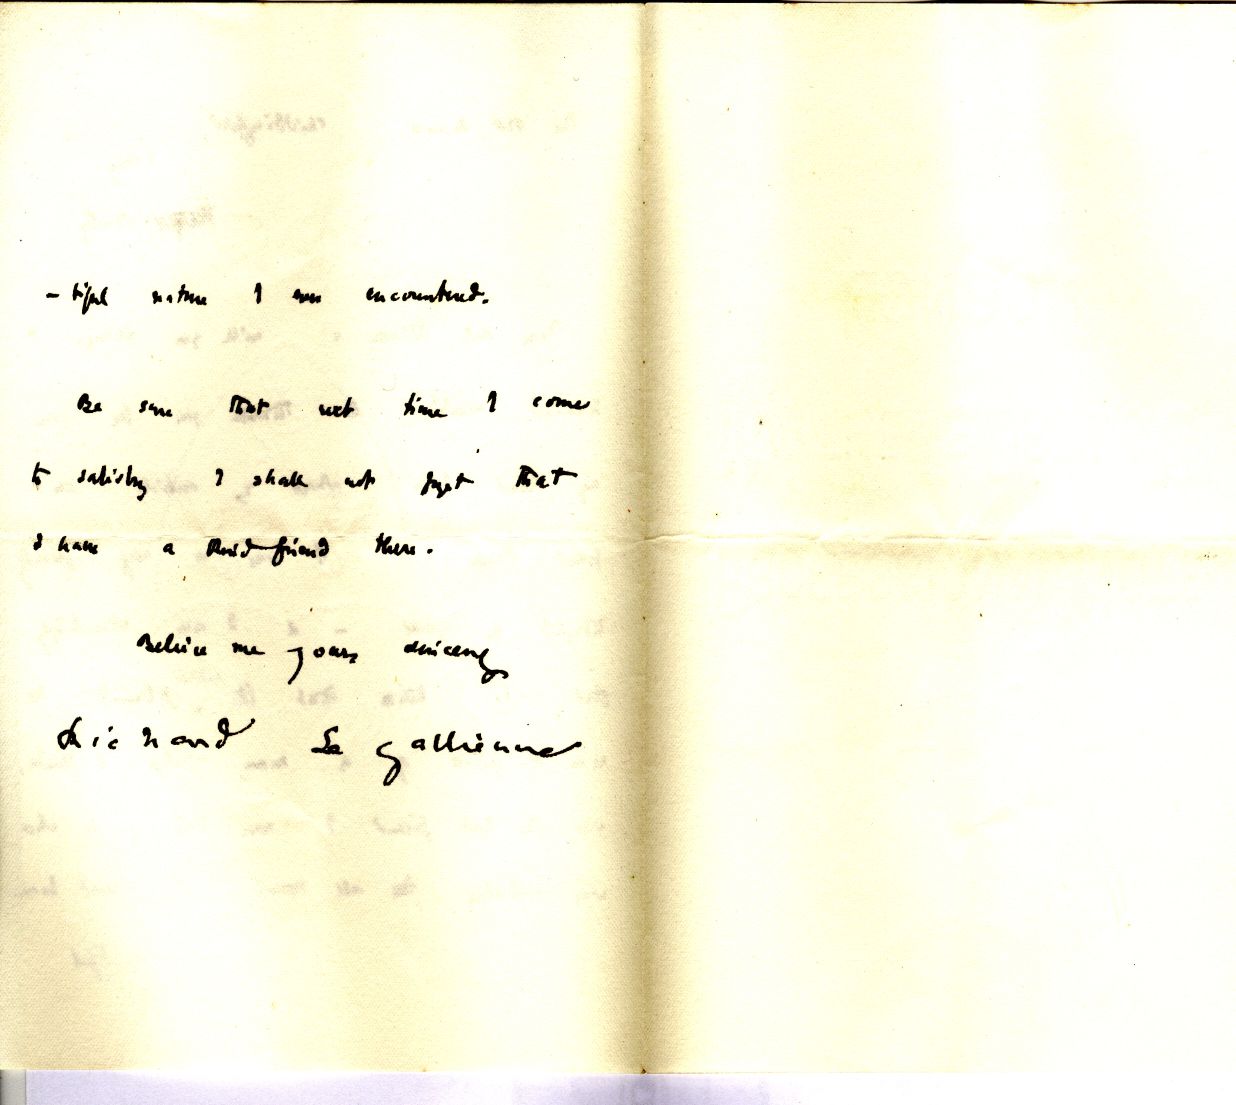 -tiful nature I ever encountered.
Be sure that next time I come
to Salisbury I shall not forget that
I have a friend there.
Believe me yours sincerely
Richard Le Gallienne